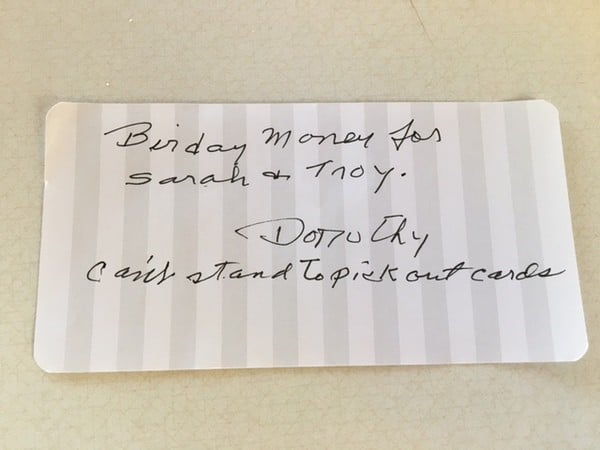 Birday Money for
Sarah & Troy.
Dorothy
Can't stand to pick out cards